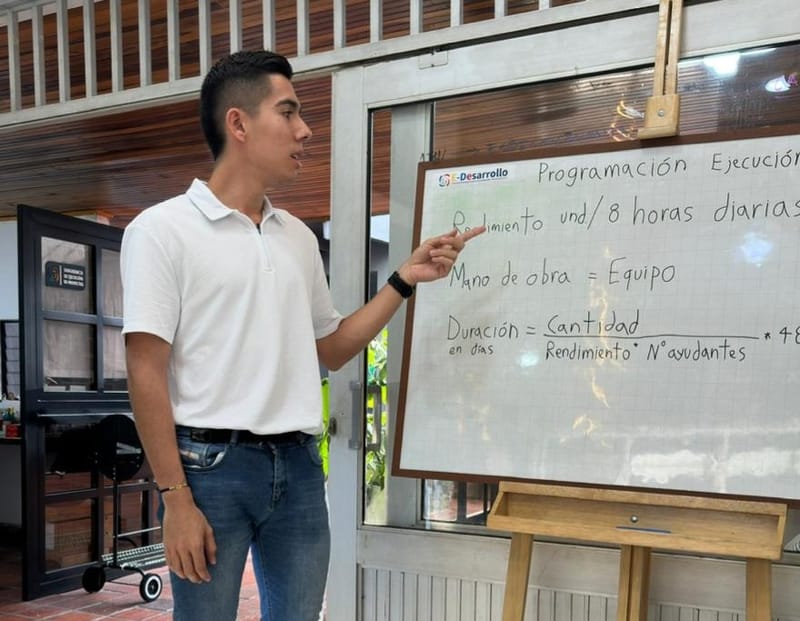 E-Desarrollo
Programación Ejecución
Rendimiento und/8 horas diarias
Mano de obra = Equipo
Duración = Cantidad * 48
en días Rendimiento * N° ayudantes